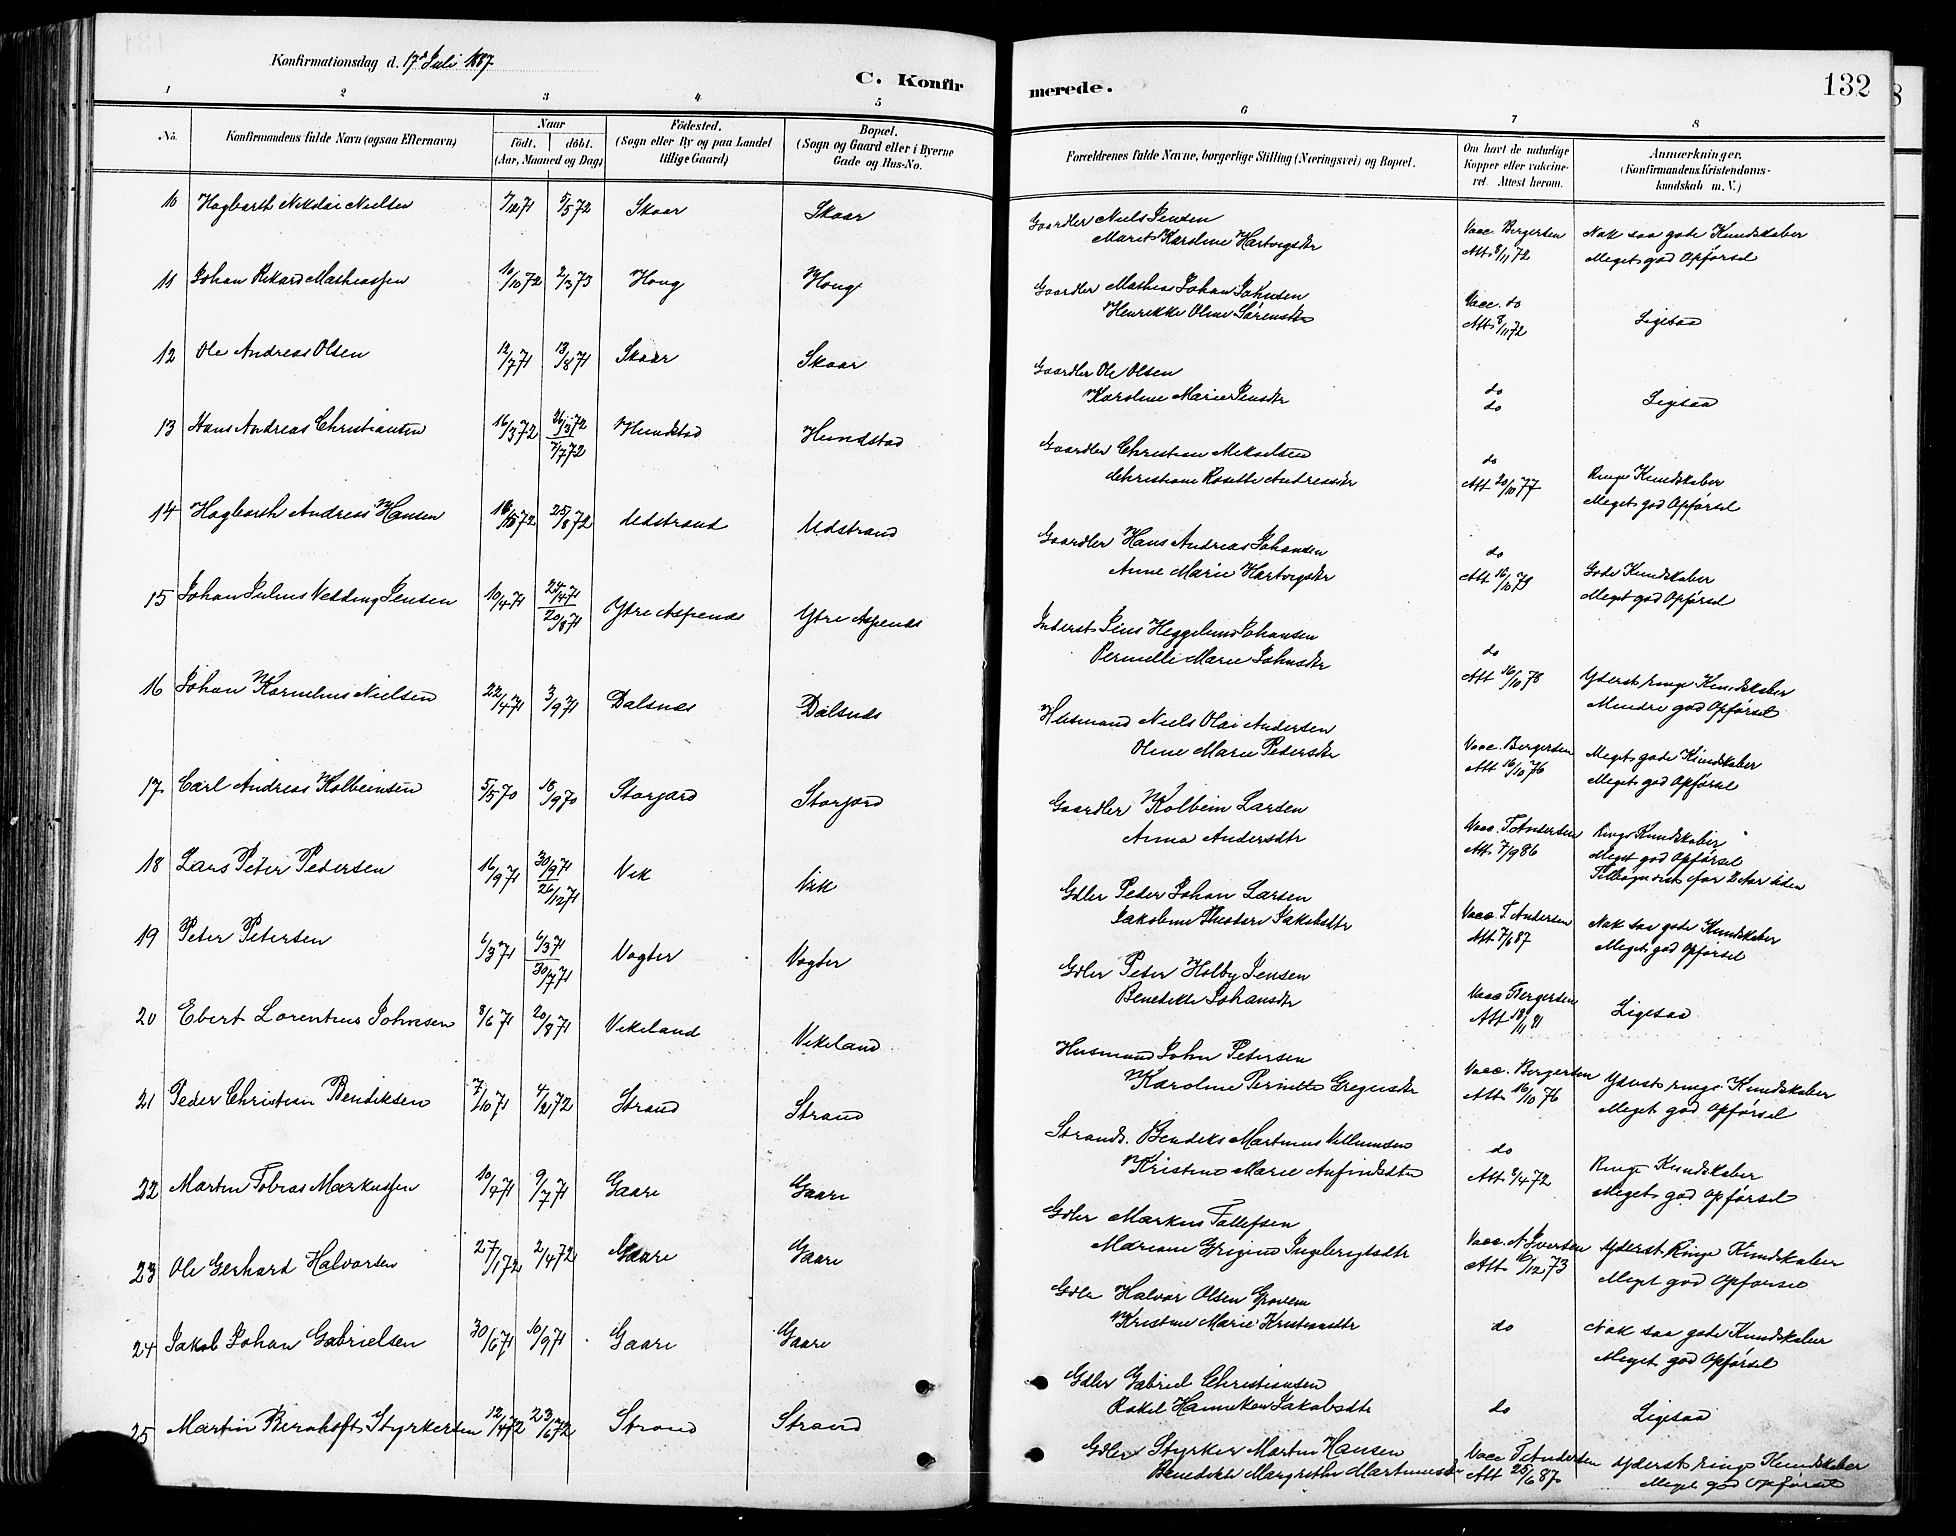 Konfirmationsdag d. 17d Juli 1887
C. Konfirmerede.
132
1 2 3 4 5 6 7 8
No.
Konfirmandens fulde Navn (ogsaa Efternavn)
Naar
födt. döbt.
(Aar, Maaned og Dag)
Födested.
(Sogn eller By og paa Landet
tillige Gaard)
Bopæl.
(Sogn og Gaard eller i Byerne
Gade og Hus-No.
Forældrenes fulde Navne, borgerlige Stilling (Næringsvei) og Bopæl.
Om havt de naturlige
Kopper eller vakcine-
ret. Attest herom.
Anmærkninger.
(Konfirmandens Kristendoms-
kundskab m. V.)
10 Hagbarth Nikolai Nielsen 7/12 71 5/5 72 Skaar Skaar
Gaardler Niels Jensen Vacc. Bergersen Nok saa gode Kundskaber
Maret Karoline Hartvigsdtr Att 8/11 72 Meget god Opförsel
11 Johan Rikard Mathiassen 10/10 72 2/3 73 Houg Houg
Gaardler Mathias Johan Johnsen Vacc. do Ligesaa
Henrikke Oline Sörensdtr Att 8/11 72
12 Ole Andreas Olsen 12/7 71 13/8 71 Skaar Skaar
Gaardler Ole Olsen do Ligesaa
Karoline Marie Jensdtr do
13 Hans Andreas Christiansen 16/3 72 26/3 72 Hundstad Hundstad
7/7 72
Gaardler Christian Mikælsen do Ringe Kundskaber
Christiane Rosette Andreasdtr Att 20/10 77 Meget god Opförsel
14 Hagbarth Andreas Hansen 25/8 72 Udstrand Udstrand
Gaardler Hans Andreas Johansen do Gode Kundskaber
Anne Marie Hartvigsdtr Meget god Opförsel
15 Johan Julius Vedding Jensen 10/4 71 24/4 71 Ytre Aspenes Ytre Aspenes
20/8 71
Inderst Jens Heggelund Johansen do Yderst ringe Kundskaber
Pernille Marie Johnsdtr Att 16/10 78 Mindre god Opförsel
16 Johan Kornelius Nielsen 22/4 71 3/9 71 Dalsnes Dalsnes
Husmand Niels Olai Andersen Vacc. Bergersen Meget gode Kundskaber
Oline Marie Pedersdtr Att 16/10 76 Meget god Opförsel
17 Carl Andreas Kolbeinsen 5/5 70 18/9 70 Storjord Storjord
Gaardler Kolbein Larsen Vacc. T. Andersen Ringe Kundskaber
Anna Andersdtr Att 7/9 86 Meget god Opförsel
Tilbagevist for 2 Aar siden
18 Lars Peter Pedersen 16/9 71 30/9 71 Vik Vik
26/12 71
Gdler Peder Johan Larsen Vacc T. Andersen Nok saa gode Kundskaber
Jakobine Jakobsdtr Att 7/6 87 Meget god Opförsel
19 Peter Petersen 6/3 71 6/3 71 Vogter Vogter
30/7 71
Gdler Peter Holby Jensen Vacc Bergersen Ligesaa
Benedikte Johansdtr Att 18/11 81
20 Ebert Lorentius Johnsen 8/6 71 20/8 71 Vikeland Vikeland
Husmand John Petersen Vacc. Bergersen Yderst ringe Kundskaber
Karoline Pernitte Gregusdtr Att 16/10 76 Meget god Opförsel
21 Peder Christian Bendiksen 7/10 71 4/2 72 Strand Strand
Strands. Bendiks Martinus Villumsen do Ringe Kundskaber
Kristine Marie Anfindsdtr Att 8/4 72 Meget god Opförsel
22 Martin Tobias Markussen 10/4 71 9/7 71 Gaare Gaare
Gdler Markus Tollefsen Vacc. A. Iversen Yderst Ringe Kundskaber
Mariane Grigine Ingebrigtsdtr Att 16/12 73 Meget god Opförsel
23 Ole Gerhard Halvorsen 27/1 72 2/4 72 Gaare Gaare
Gdler Halvor Olsen Grovem do Nok saa gode Kundskaber
Kristine Marie Kristiansdtr Meget god Opförsel
24 Jakob Johan Gabrielsen 30/6 71 10/9 71 Gaare Gaare
Gdler Gabriel Christiansen do Ligesaa
Rakel Hannekon Jakobsdtr
25 Martin Bernhoft Styrkersen 12/4 72 23/6 72 Strand Strand
Gdler Styrker Martin Hansen Vacc T. Andersen Yderst ringe Kundskaber
Benedikte Margrethe Martinusdtr Att 25/6 87 Meget god Opförsel